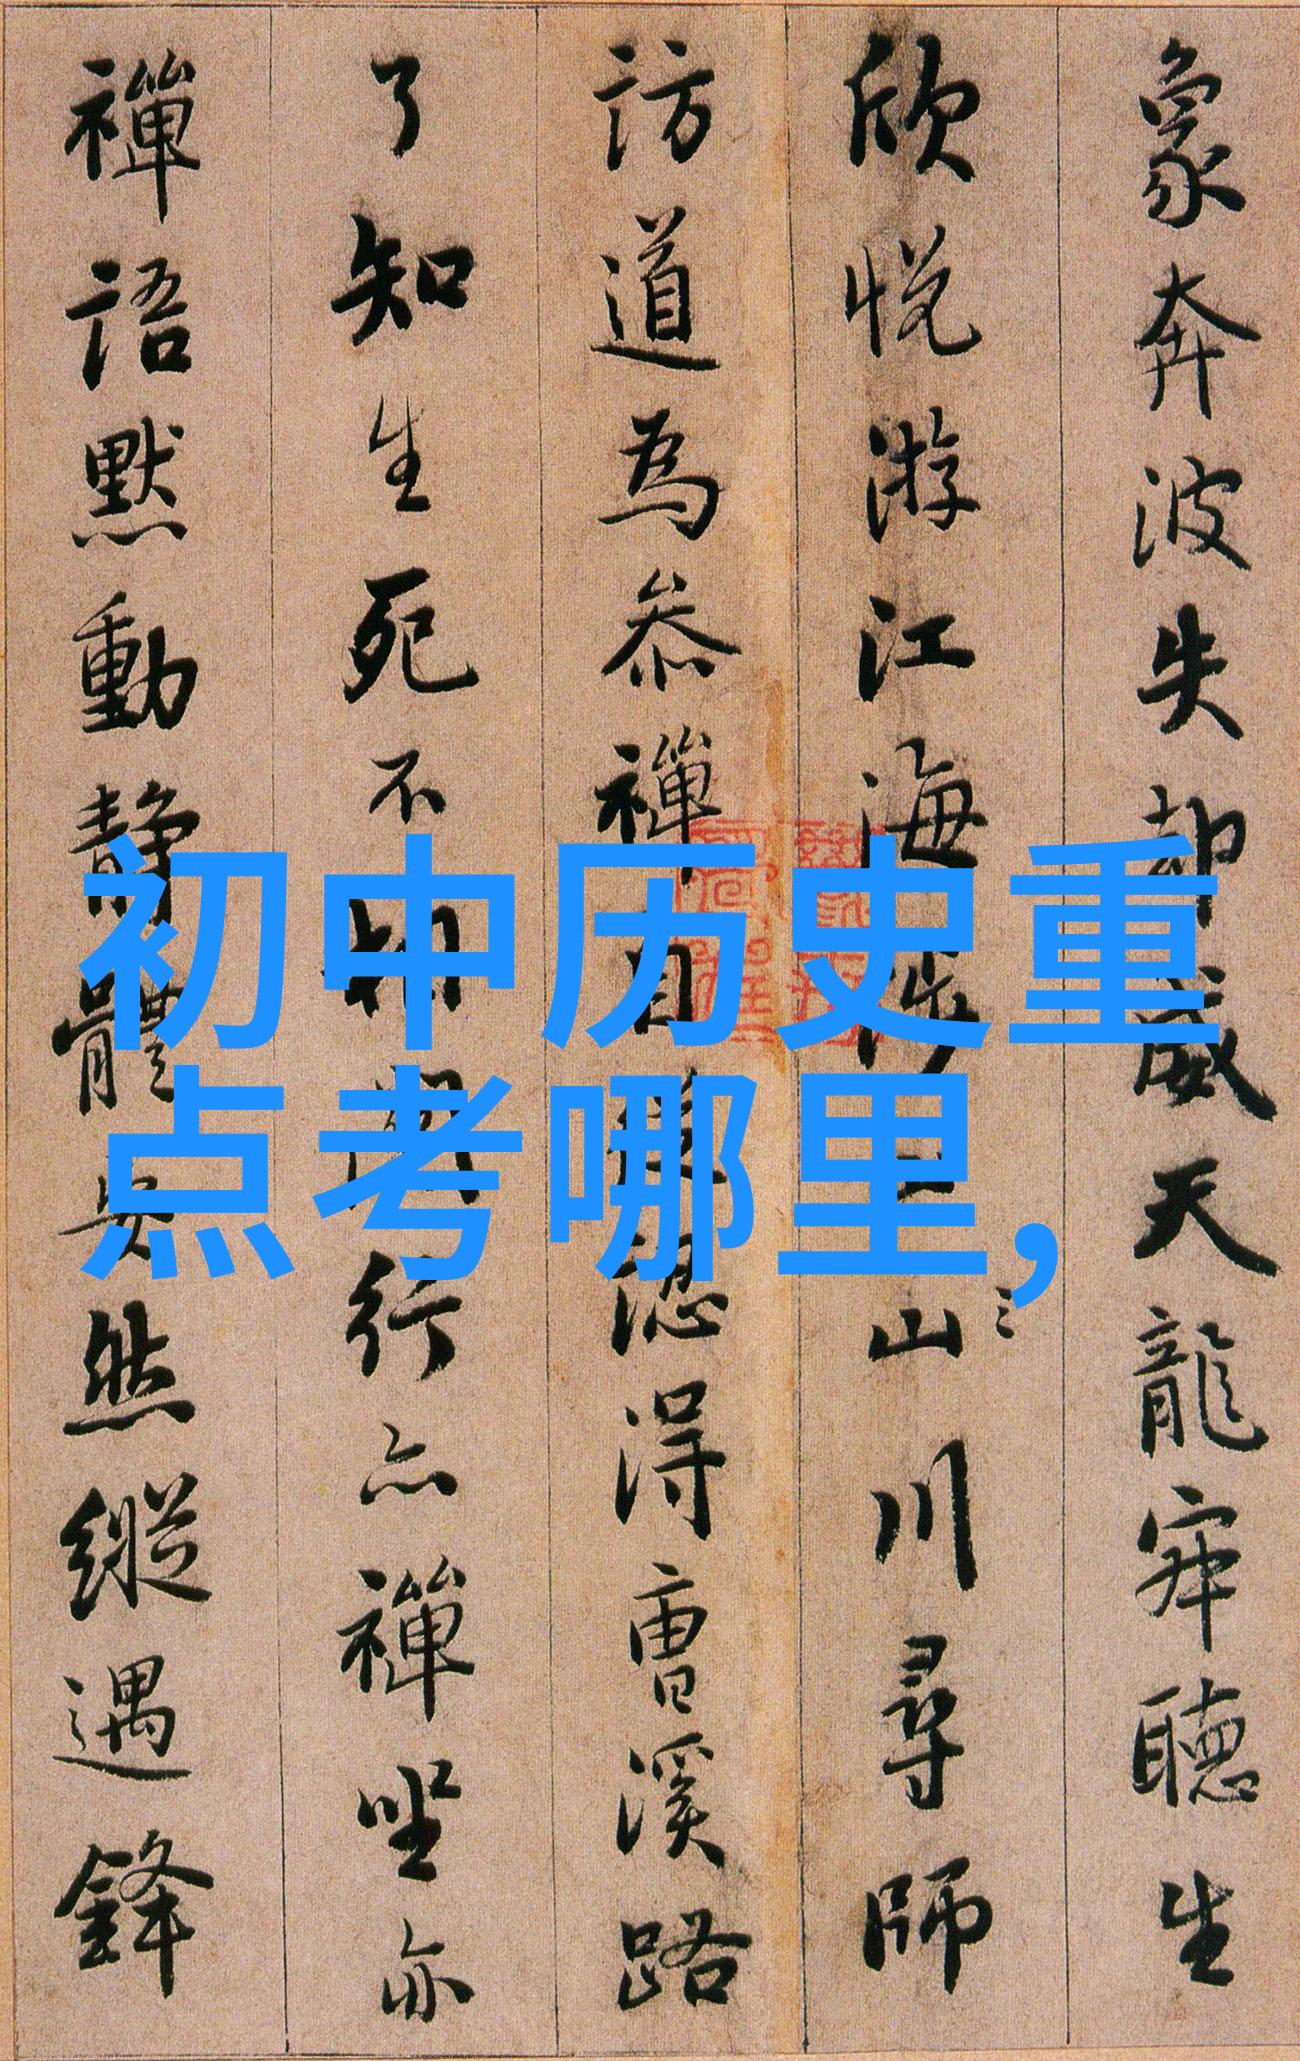 象奔波失却威天龍寂聽生
欣悦游江海涉山川尋師
訪道為叅禪自從認得曹溪路
了知生死不相關行亦禪坐亦
禪語默動靜體安然縱遇鋒
初中历史重
点考哪里,